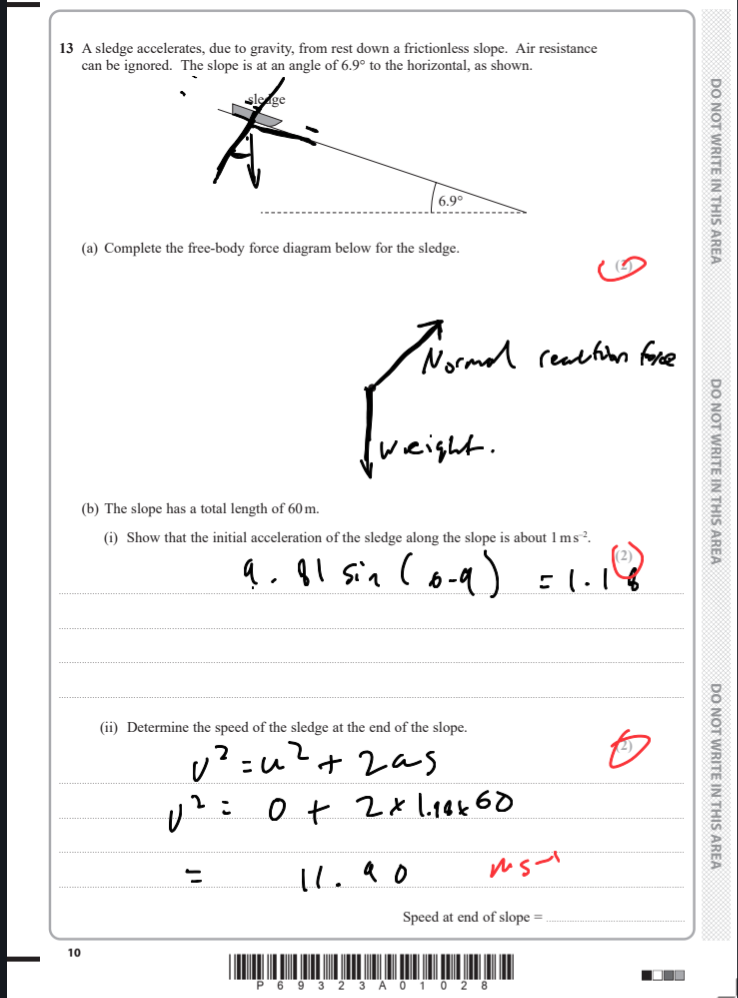 13 A sledge accelerates, due to gravity, from rest down a frictionless slope. Air resistance
can be ignored. The slope is at an angle of 6.9° to the horizontal, as shown.
sledge
6.9°
(a) Complete the free-body force diagram below for the sledge.
(2)
Normal reaction force
weight.
(b) The slope has a total length of 60 m.
(i) Show that the initial acceleration of the sledge along the slope is about 1 m s⁻².
(2)
9.81 sin (6.9) = 1.18
(ii) Determine the speed of the sledge at the end of the slope.
(2)
v² = u² + 2as
v² = 0 + 2 × 1.18 × 60
= 11.90 ms⁻¹
Speed at end of slope =
10
P69323A01028
DO NOT WRITE IN THIS AREA
DO NOT WRITE IN THIS AREA
DO NOT WRITE IN THIS AREA